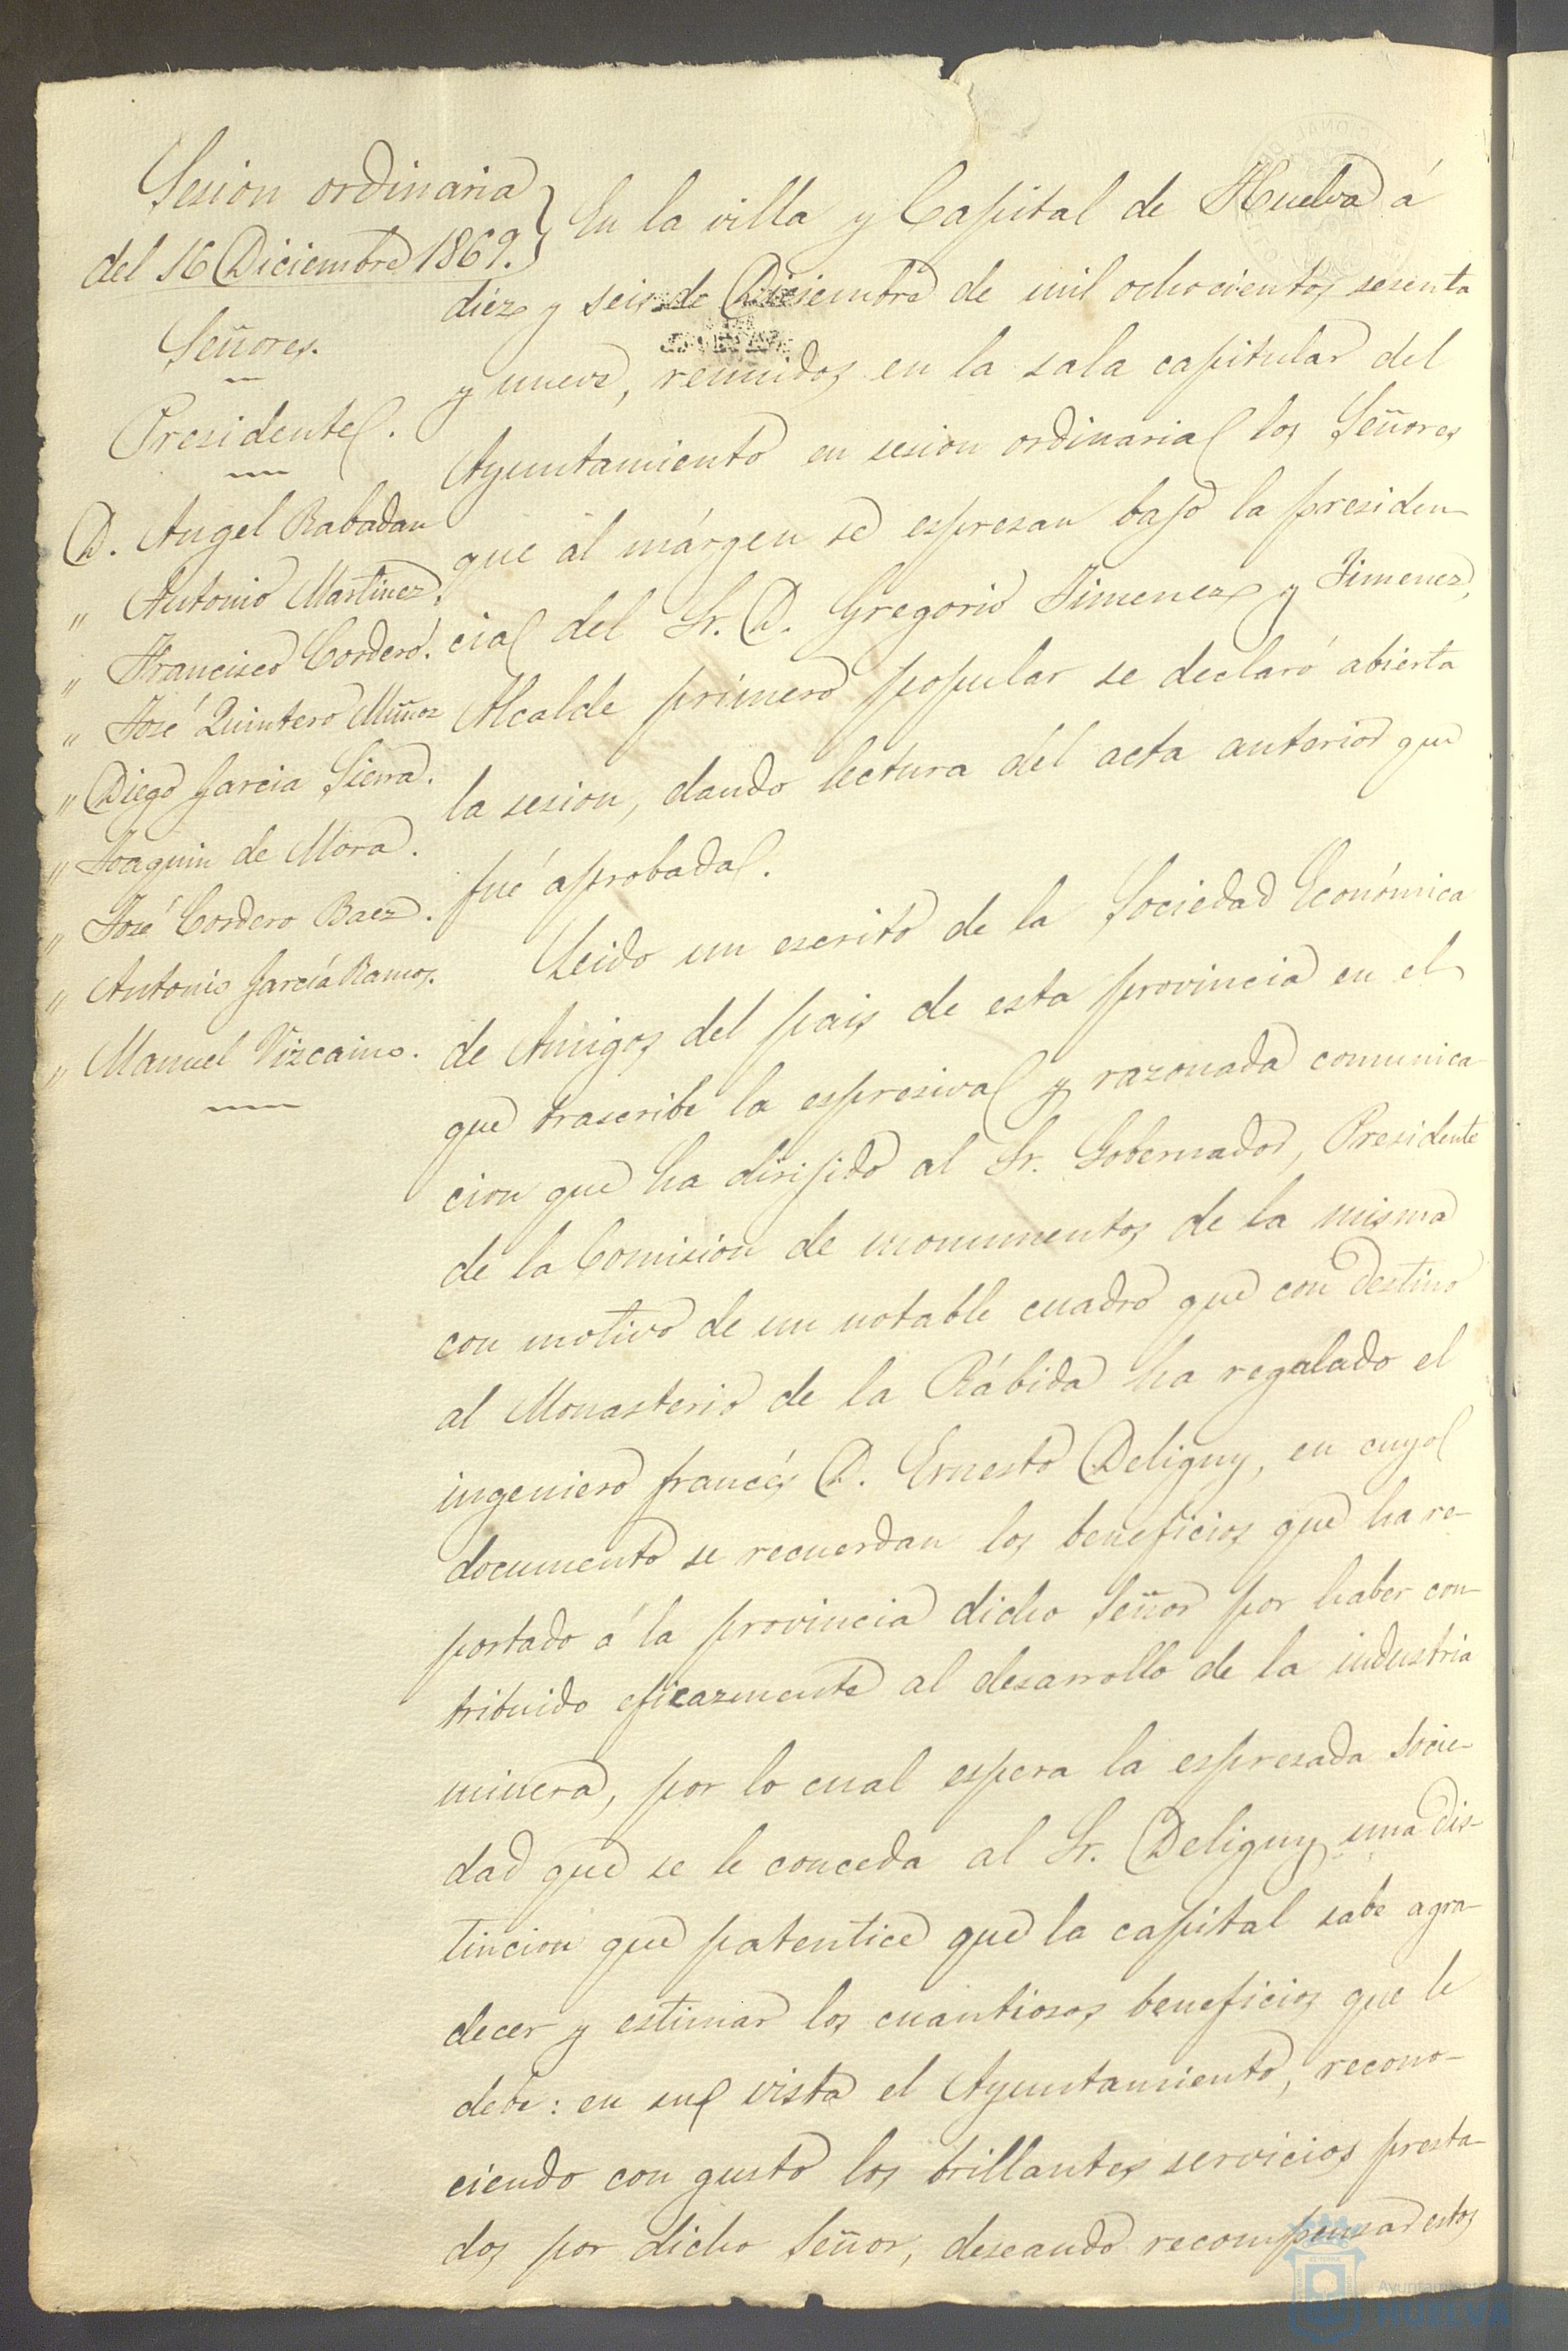 Sesion ordinaria
del 16 Diciembre 1869.
Señores.
Presidente.
D. Angel Rabadan
" Antonio Martinez.
" Francisco Cordero.
" José Quintero Muñoz
" Diego Garcia Sierra.
" Joaquin de Mora.
" José Cordero Baez.
" Antonio García Ramos.
" Manuel Vizcaino.
En la villa y Capital de Huelva á
diez y seis de Diciembre de mil ochocientos sesenta
y nueve, reunidos en la sala capitular del
Ayuntamiento en sesion ordinaria los Señores
que al márgen se espresan bajo la presiden-
cia del Sr. D. Gregorio Jimenez y Jimenez,
Alcalde primero popular se declaró abierta
la sesion, dando lectura del acta anterior que
fué aprobada.
Leido un escrito de la Sociedad Económica
de Amigos del pais de esta provincia en el
que trascribe la espresiva y razonada comunica-
cion que ha dirijido al Sr. Gobernador, Presidente
de la Comision de monumentos de la misma
con motivo de un notable cuadro que con destino
al Monasterio de la Rábida ha regalado el
ingeniero francés D. Ernesto Deligny, en cuyo
documento se recuerdan los beneficios que ha re-
portado á la provincia dicho Señor por haber con-
tribuido eficazmente al desarrollo de la industria
minera, por lo cual espera la espresada Socie-
dad que se le conceda al Sr. Deligny una dis-
tincion que patentice que la capital sabe agra-
decer y estimar los cuantiosos beneficios que le
debe: en su vista el Ayuntamiento, recono-
ciendo con gusto los brillantes servicios presta-
dos por dicho Señor, deseando recompensar estos
Ayuntamiento
HUELVA